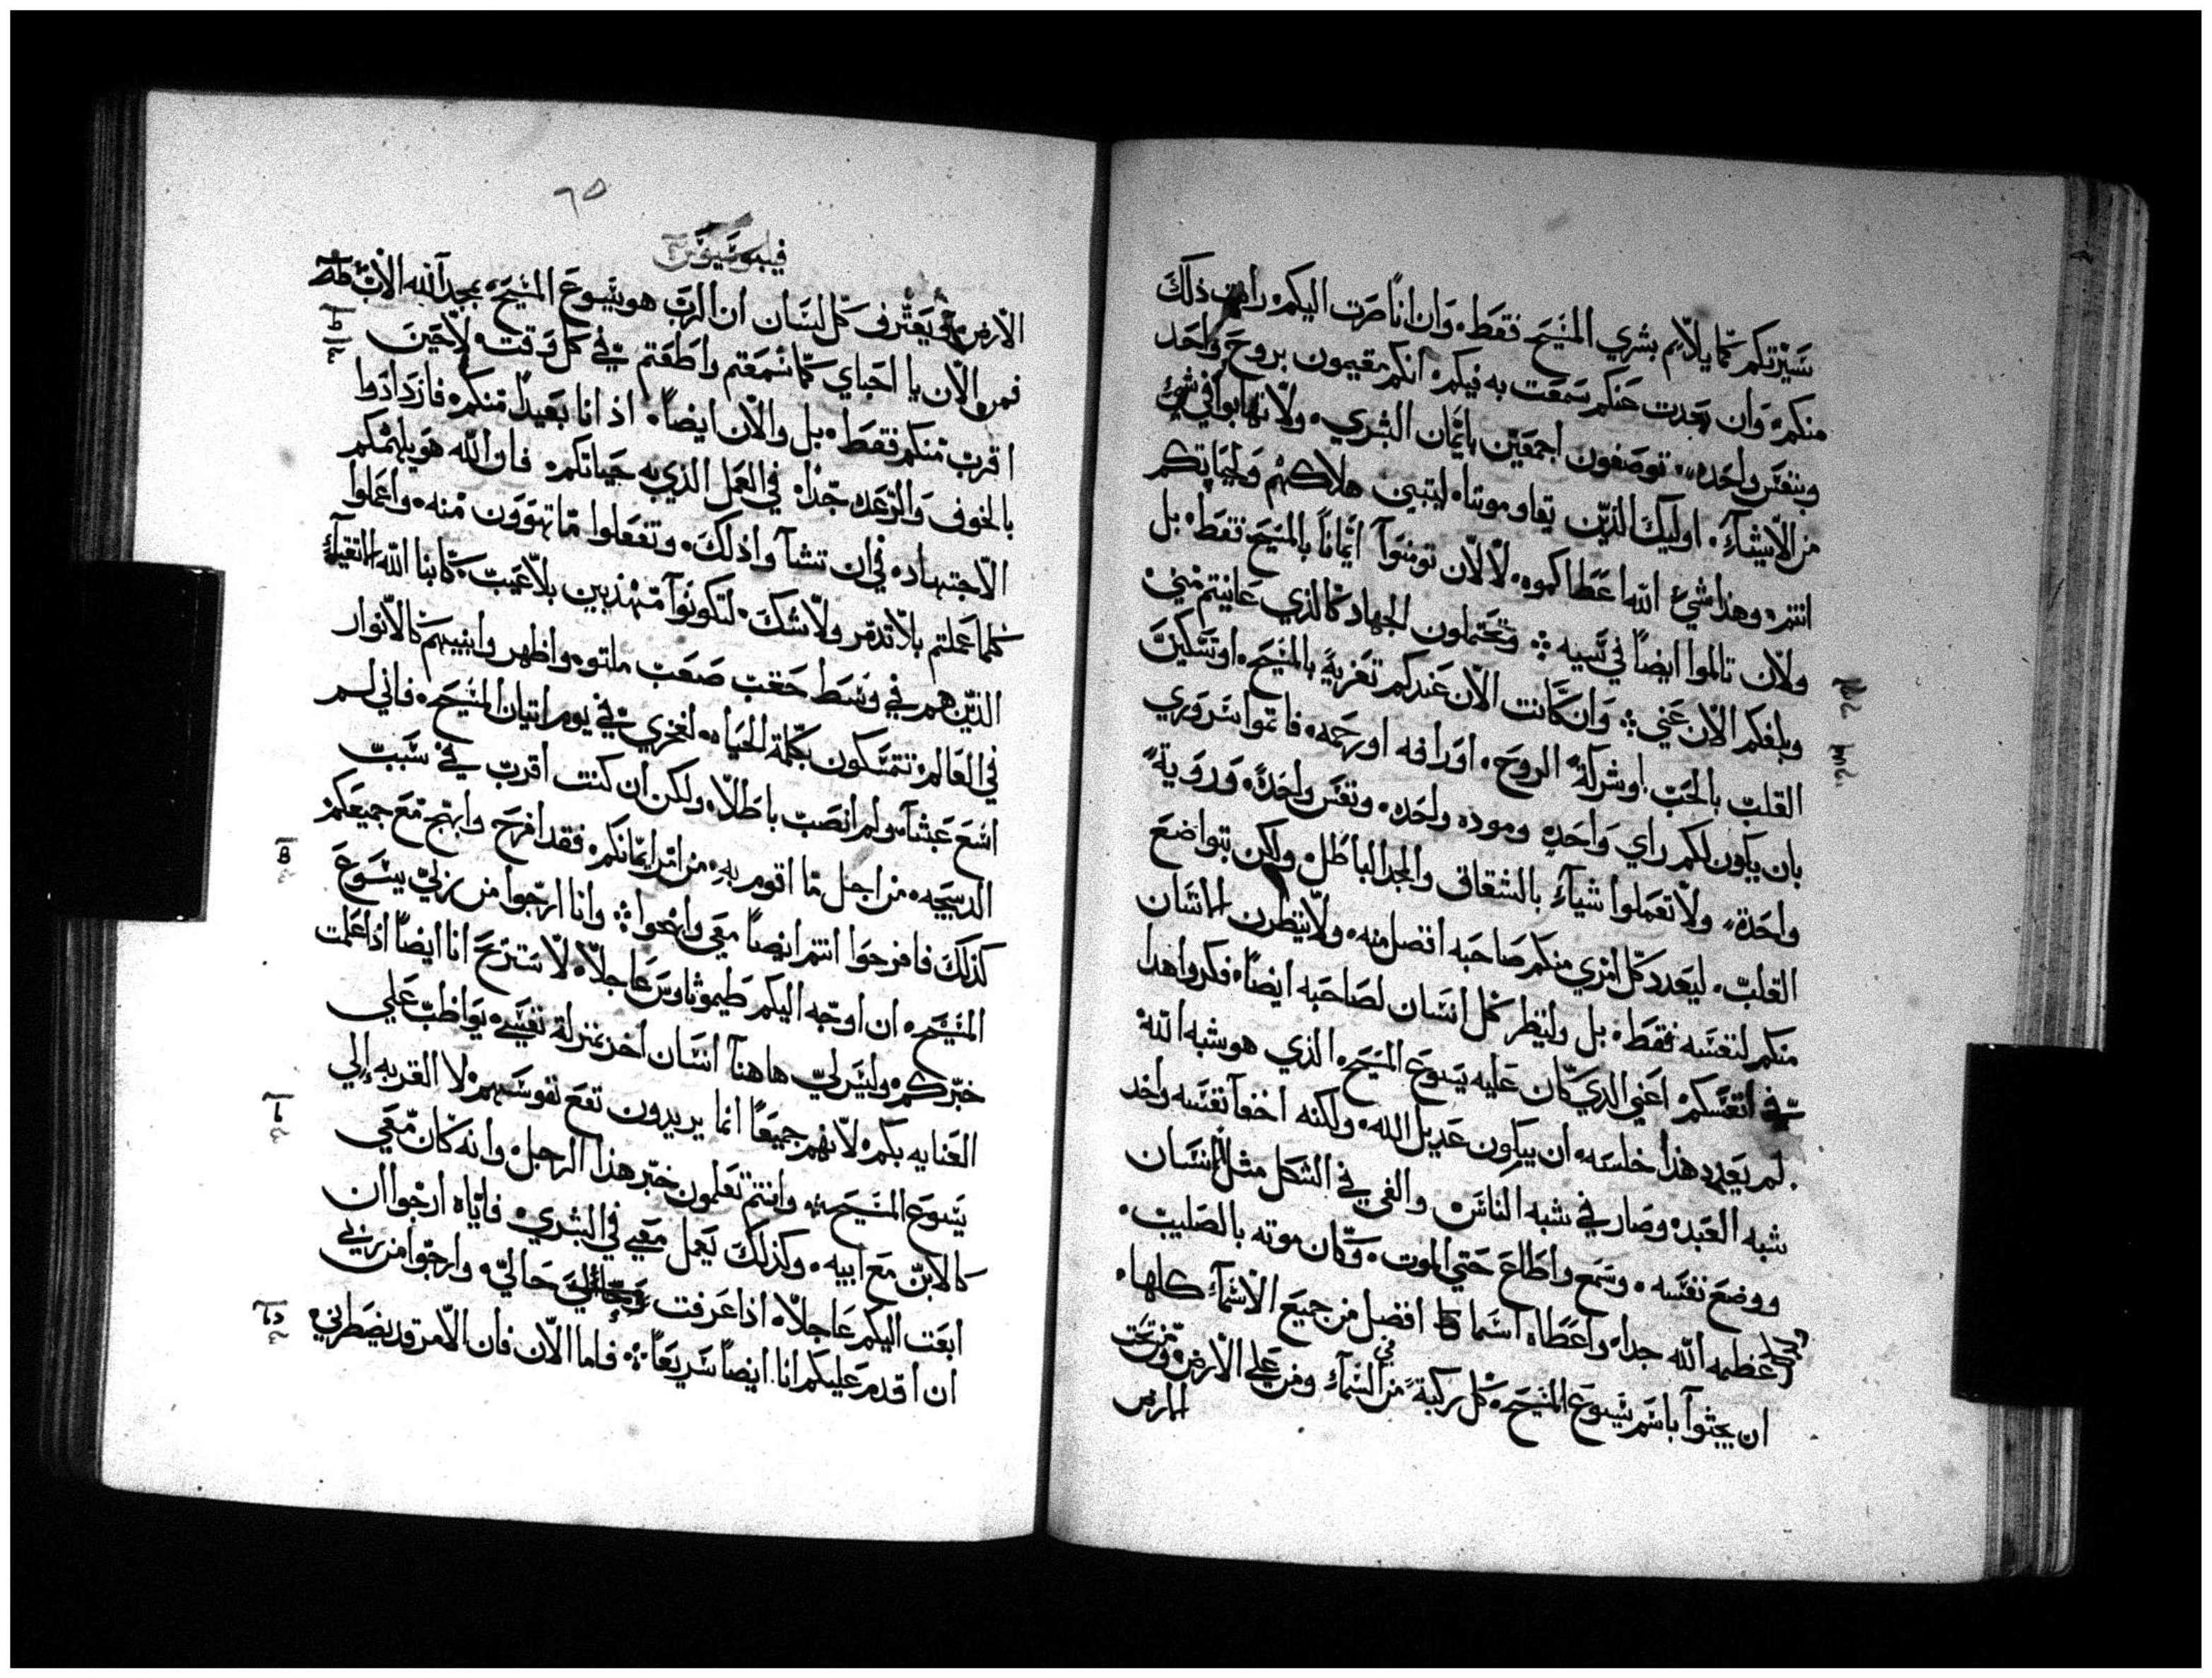 سيرتكم كما يلايم بشري المسيح فقط وان اناً صرت اليكم رايت ذلك
منكم وان بعدت عنكم سمعت به فيكم انكم مقيمون بروح واحد
وبنفس واحده توصفون اجمعين بايمان البشري ولا تهابوا في شي
من الاشيآء اوليك الذين يقاوموننا ليتبين هلاكهم ولحياتكم
انتم وهذا شي الله اعطاكموه لا لان تومنوآ ايماناً بالمسيح فقط بل
ولان تالموا ايضاً في سبيه وتحتملون الجهاد كالذي عاينتم مني
وبلغكم الان عني وان كانت الان عندكم تعزيةً بالمسيح او تسكين
القلب بالحب او شركة الروح او رافه او رحمه فاتموا سروري
بان يكون لكم راي واحدٍ وموده واحده ونفس واحدة ورويةً
واحدة ولا تعملوا شيآء بالشقاق والمجد الباطل ولكن بتواضع
القلب ليعدد كل امري منكم صاحبه افضل منه ولا ينظرن الانسان
منكم لنفسه فقط بل ولينظر كل انسان لصاحبه ايضاً فكروا هدا
في انفسكم اعني الدي كان عليه يسوع المسيح الذي هو شبه الله
لم يعدد هذا خلسه ان يكون عديل الله ولكنه اخفآ نفسه واخد
شبه العبد وصار في شبه الناس والفي في الشكل مثل الانسان
ووضع نفسه وسمع واطاع حتي الموت وكان موته بالصليب
اعظمه الله جدا واعطاه اسما افضل من جميع الاسمآء كلها
ان يجثوآ باسم يسوع المسيح كل ركبة من في السمآء ومن علي الارض ومن تحت
الارض
٦٥
الارض ويعترف كل لسان ان الرب هو يسوع المسيح بمجد الله الاب
فمن الان يا احباي كما سمعتم واطعتم في كل وقت لا حين
اقرب منكم فقط بل والان ايضاً اذ انا بعيداً منكم فازدادوا
بالخوف والرعده جداً في العمل الذي به حياتكم فان الله هو يلهمكم
الاجتهاد في ان تشآوا ذلك وتفعلوا ما تهوون منه واعملوا
كلما عملتم بلا تدمر ولا شك لتكونوآ مهذبين بلا عيب كابنا الله الاتقيآء
الذين هم في وسط حقب صعب ملتوه واظهروا بينهم كالانوار
في العالم تتمسكون بكلمة الحياه لفخري في يوم اتيان المسيح فاني لم
اسع عبثآ ولم انصب باطلا ولكن ان كنت اقرب في سبب
الدبيحه من اجل ما اقوم به من امر ايمانكم فقد افرح وابتهج مع جميعكم
كذلك فافرحوا انتم ايضاً معي وابهجوا وانا ارجوا من ربي يسوع
المسيح ان اوجه اليكم طيموثاوس عاجلا لاستريح انا ايضاً اذا علمت
خبركم وليس لي هاهنآ انسان اخر بمنزلة نفسي يواظب علي
العنايه بكم لانهم جميعاً انما يريدون نفع نفوسهم لا القربه الي
يسوع المسيح وانتم تعلمون خبر هذا الرجل وانه كان معي
كالابن مع ابيه وكذلك يعمل معي في البشري فاياه ارجوا ان
ابعت اليكم عاجلا اذا عرفت حالي وارجوا من ربي
ان اقدم عليكم انا ايضاً سريعاً فاما الان فان الامر قد يضطرني